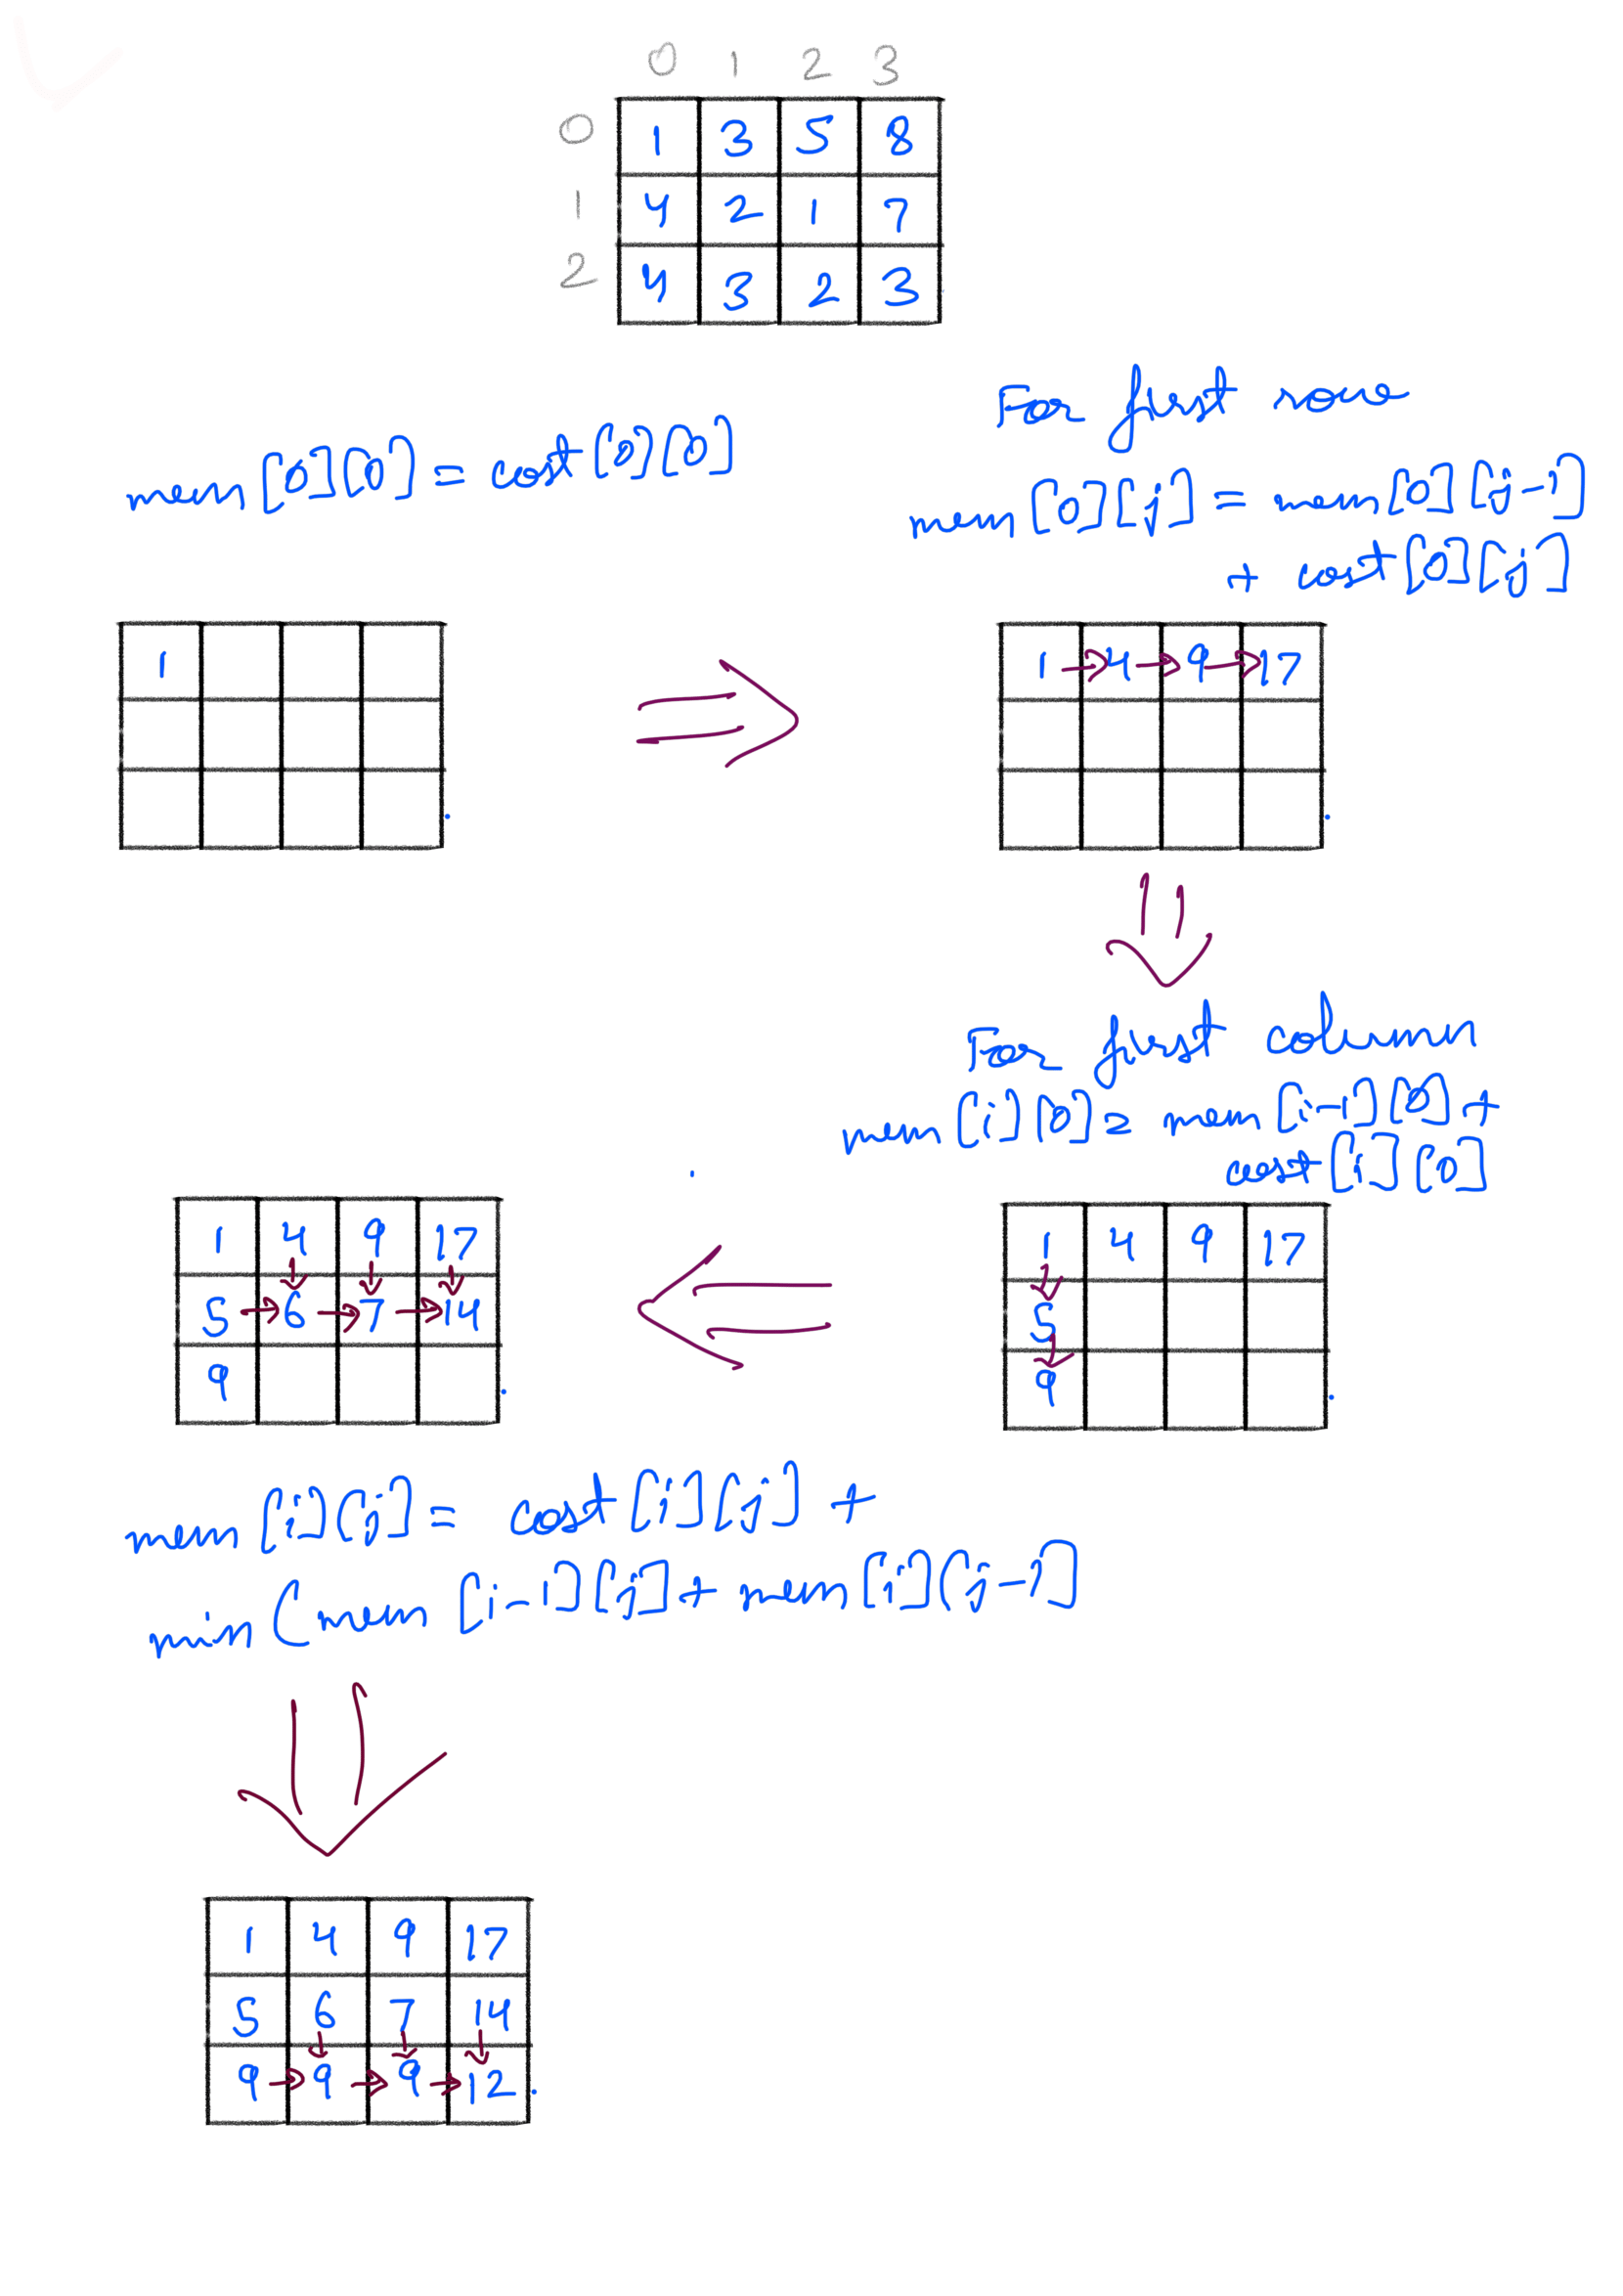 0 1 2 3
0 1 3 5 8
1 4 2 1 7
2 4 3 2 3
mem[0][0] = cost[0][0]
For first row
mem[0][j] = mem[0][j-1]
+ cost[0][j]
1
1 4 9 17
For first column
mem[i][0] = mem[i-1][0] +
cost[i][0]
1 4 9 17
5
9
1 4 9 17
5 6 7 14
9
mem[i][j] = cost[i][j] +
min(mem[i-1][j] + mem[i][j-1]
1 4 9 17
5 6 7 14
9 9 9 12